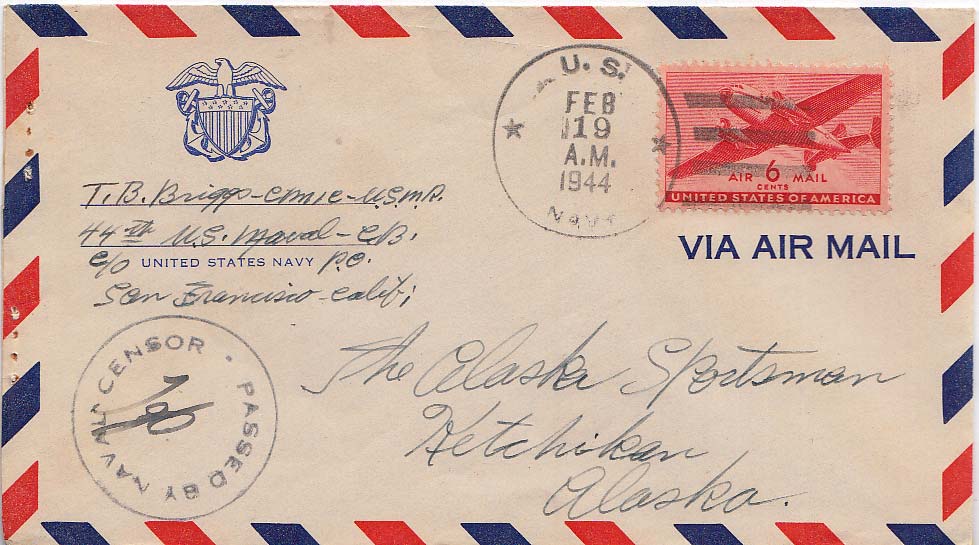 T. B. Briggs - CMIC - U.S.N.R.
44th U.S. Naval - C.B.
c/o UNITED STATES NAVY P.O.
San Francisco - Calif;
U. S.
FEB
19
A.M.
1944
NAVY
AIR 6 MAIL
CENTS
UNITED STATES OF AMERICA
VIA AIR MAIL
PASSED BY NAVAL CENSOR
The Alaska Sportsman
Ketchikan
Alaska.